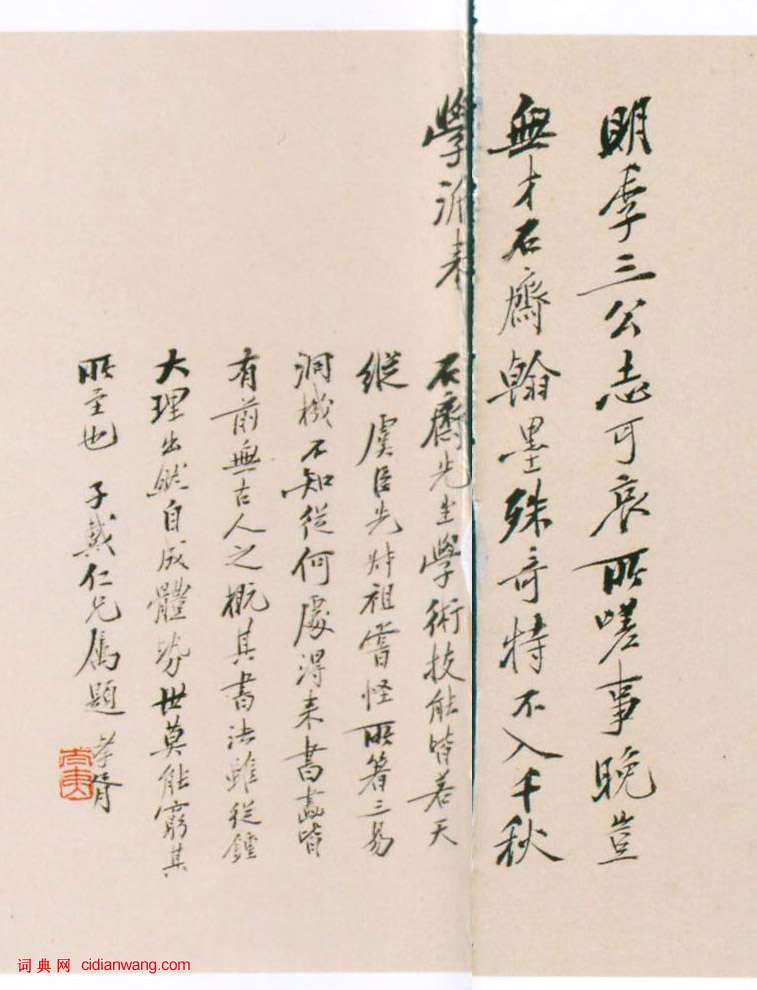 明季三公志可哀所嗟事晚豈
無才石齋翰墨殊奇特不入千秋
學派來
石齋先生學術技能皆若天
縱虞臣先叔祖嘗怪所著三易
洞機不知從何處得來書畫皆
有前無古人之概其書法雖從鍾
大理出然自成體勢世莫能窮其
所至也 子戴仁兄屬題 孝胥
词典网 cidianwang.com